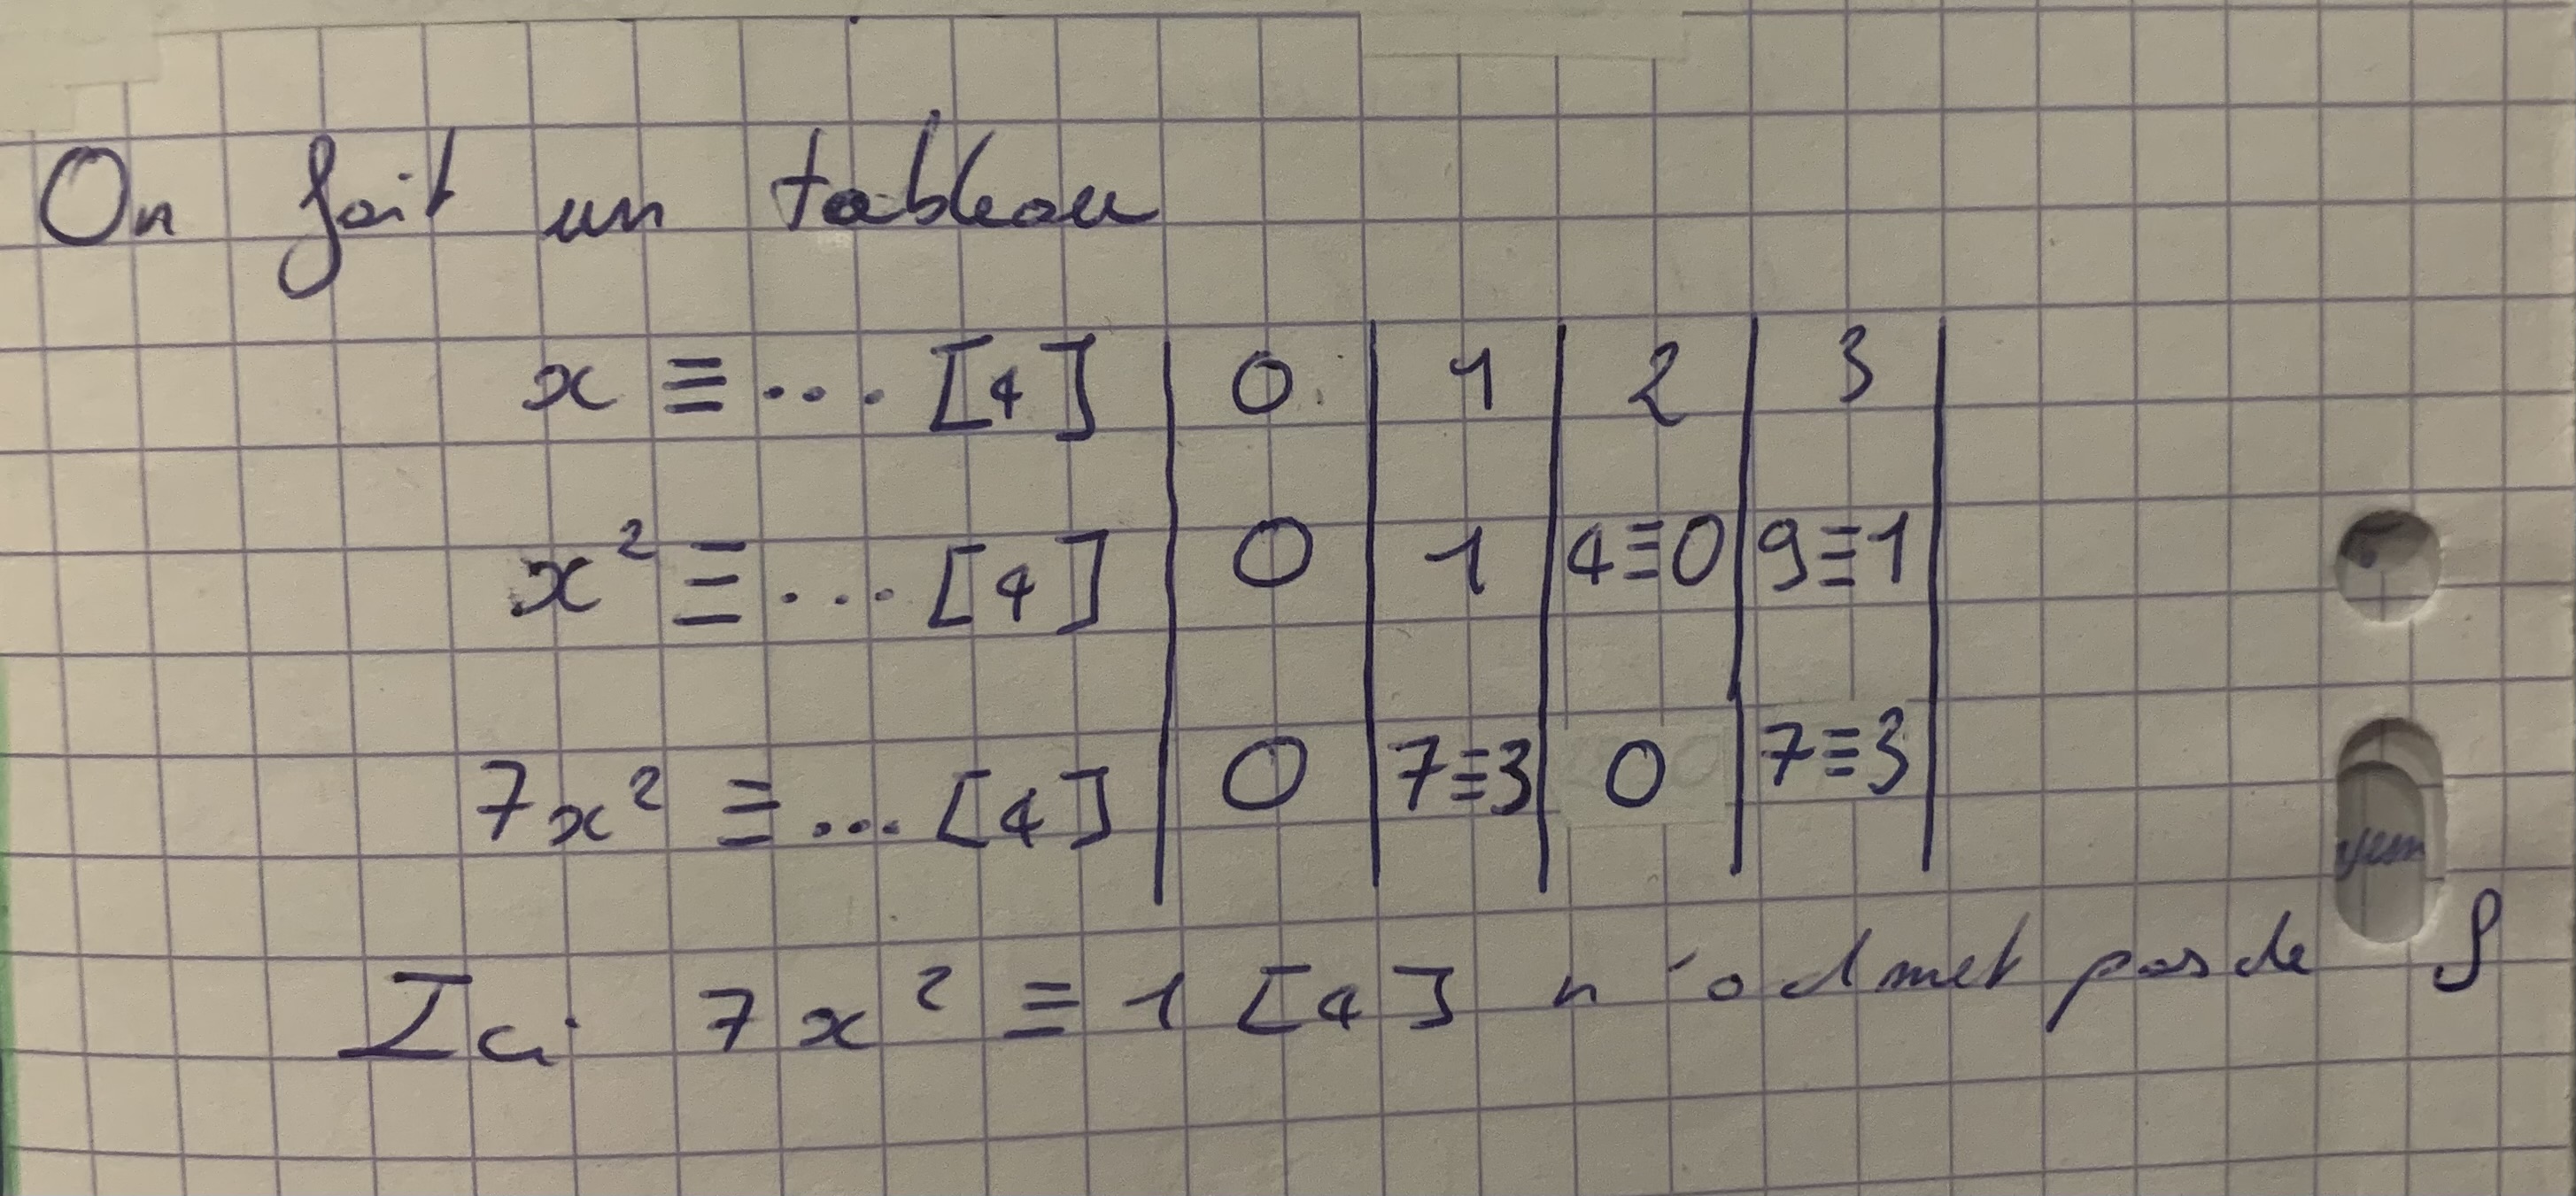 On fait un tableau
x ≡ ... [4] | 0 | 1 | 2 | 3 |
x² ≡ ... [4] | 0 | 1 | 4≡0 | 9≡1 |
7x² ≡ ... [4] | 0 | 7≡3 | 0 | 7≡3 |
Ici 7x² ≡ 1 [4] n'admet pas de S